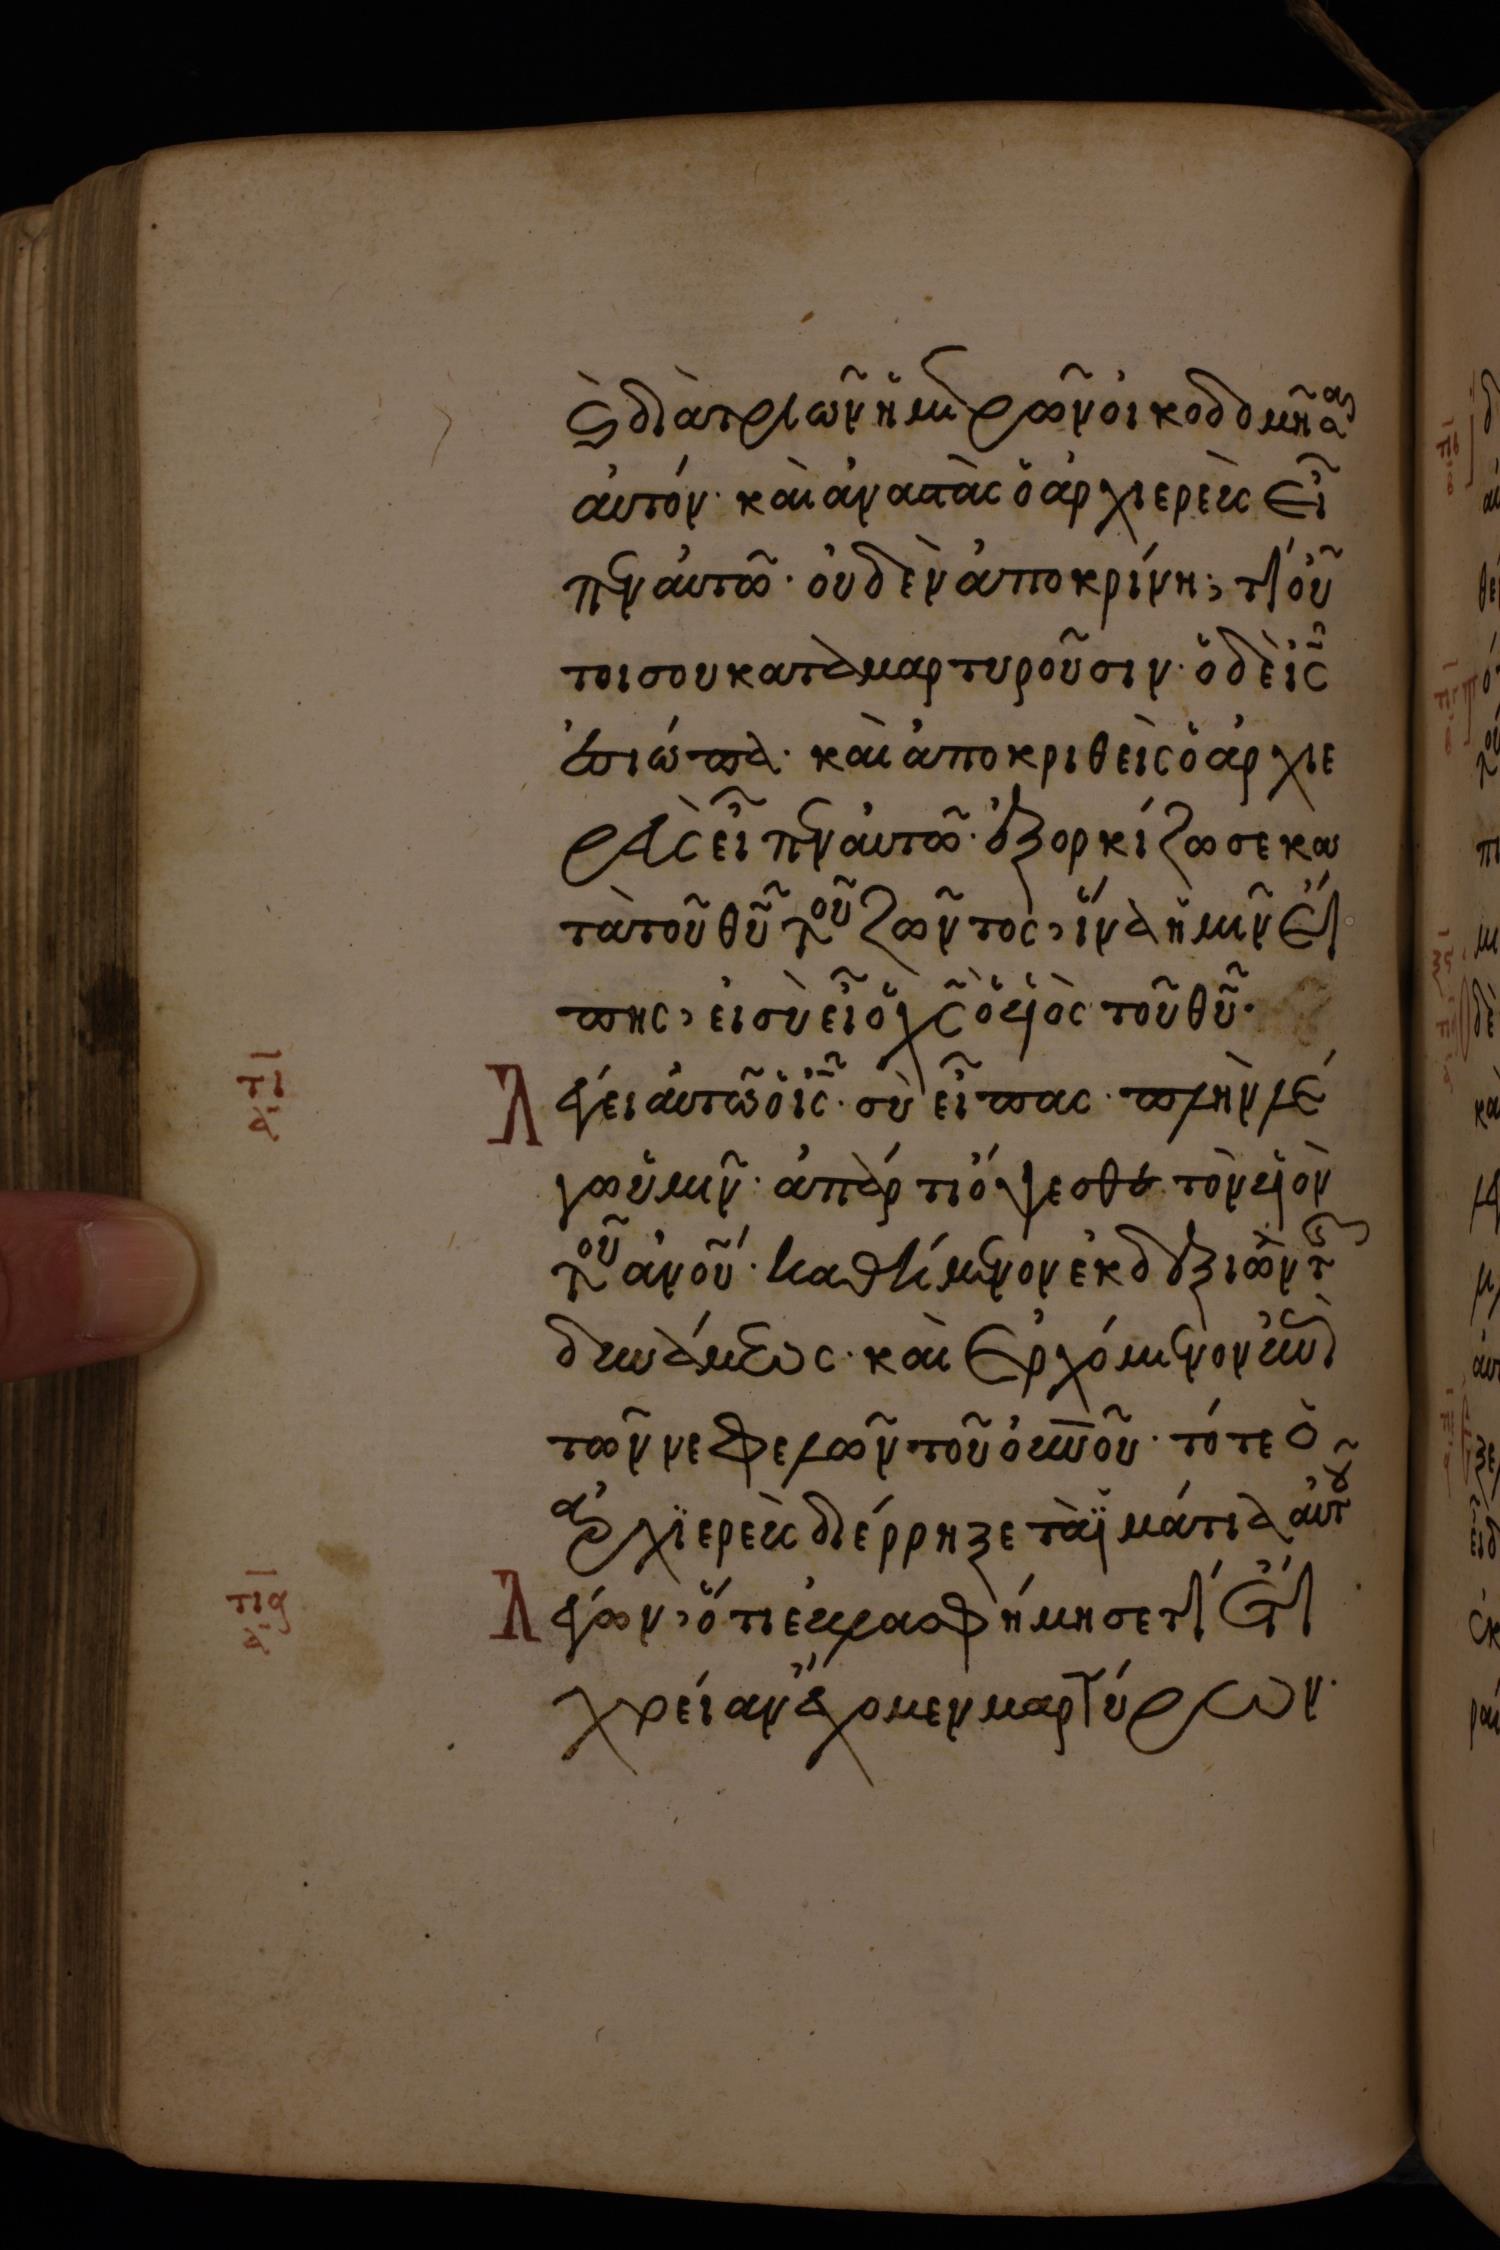 ϗ̀ διὰ τριῶν ἡμερῶν οἰκοδομῆσαι
αὐτόν· καὶ ἀναστὰς ὁ ἀρχιερεὺς εἶ
πεν αὐτῶ· οὐδὲν ἀποκρίνη; τί οὗ
τοι σου καταμαρτυροῦσιν· ὁ δὲ ἰς̅
ἐσιώπα· καὶ ἀποκριθεὶς ὁ ἀρχιε
ρεὺς εἶπεν αὐτῶ· ἐξορκίζω σε κα
τὰ τοῦ θυ̅ τοῦ ζῶντος, ἵνα ἡμῖν εἴ
πης, εἰ σὺ εἶ ὁ χς̅ ὁ υἱὸς τοῦ θυ̅·
τι̅
δ
Λέγει αὐτῶ ὁ ἰς̅· σὺ εἶπας· πλὴν λέ
γω ὑμῖν· ἀπάρτι ὄψεσθε τὸν υἱὸν
τοῦ ἀνου̅· καθήμενον ἐκ δεξιῶν τῆς
δυνάμεως· καὶ ἐρχόμενον ἐπὶ
τῶν νεφελῶν τοῦ οὐνου̅· τότε ὁ
ἀρχϊερεὺς διέρρηξε τὰ ἱμάτια αὐτοῦ
τια̅
δ
Λέγων, ὅτι ἐβλασφήμησε τί ἔτι
χρείαν ἔχομεν μαρτύρων·